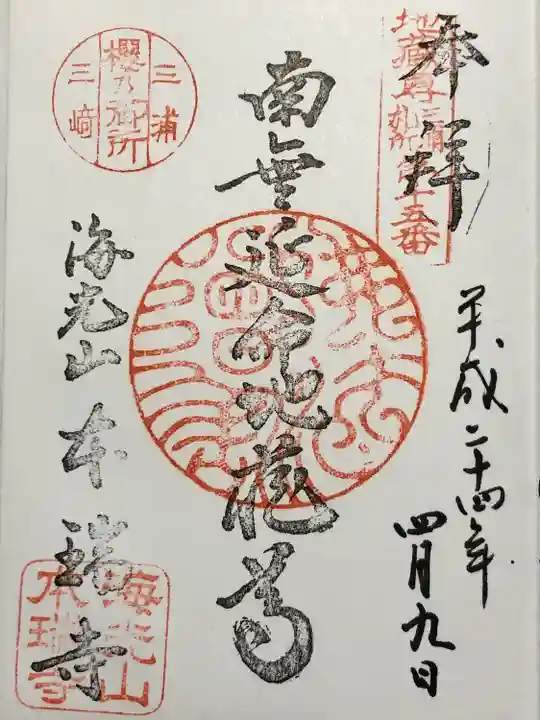 奉拝
地蔵尊三浦札所第十五番
平成二十四年
四月九日
南無延命地蔵尊
三浦
櫻乃御所
三崎
海光山
本瑞寺
海光山
本瑞寺